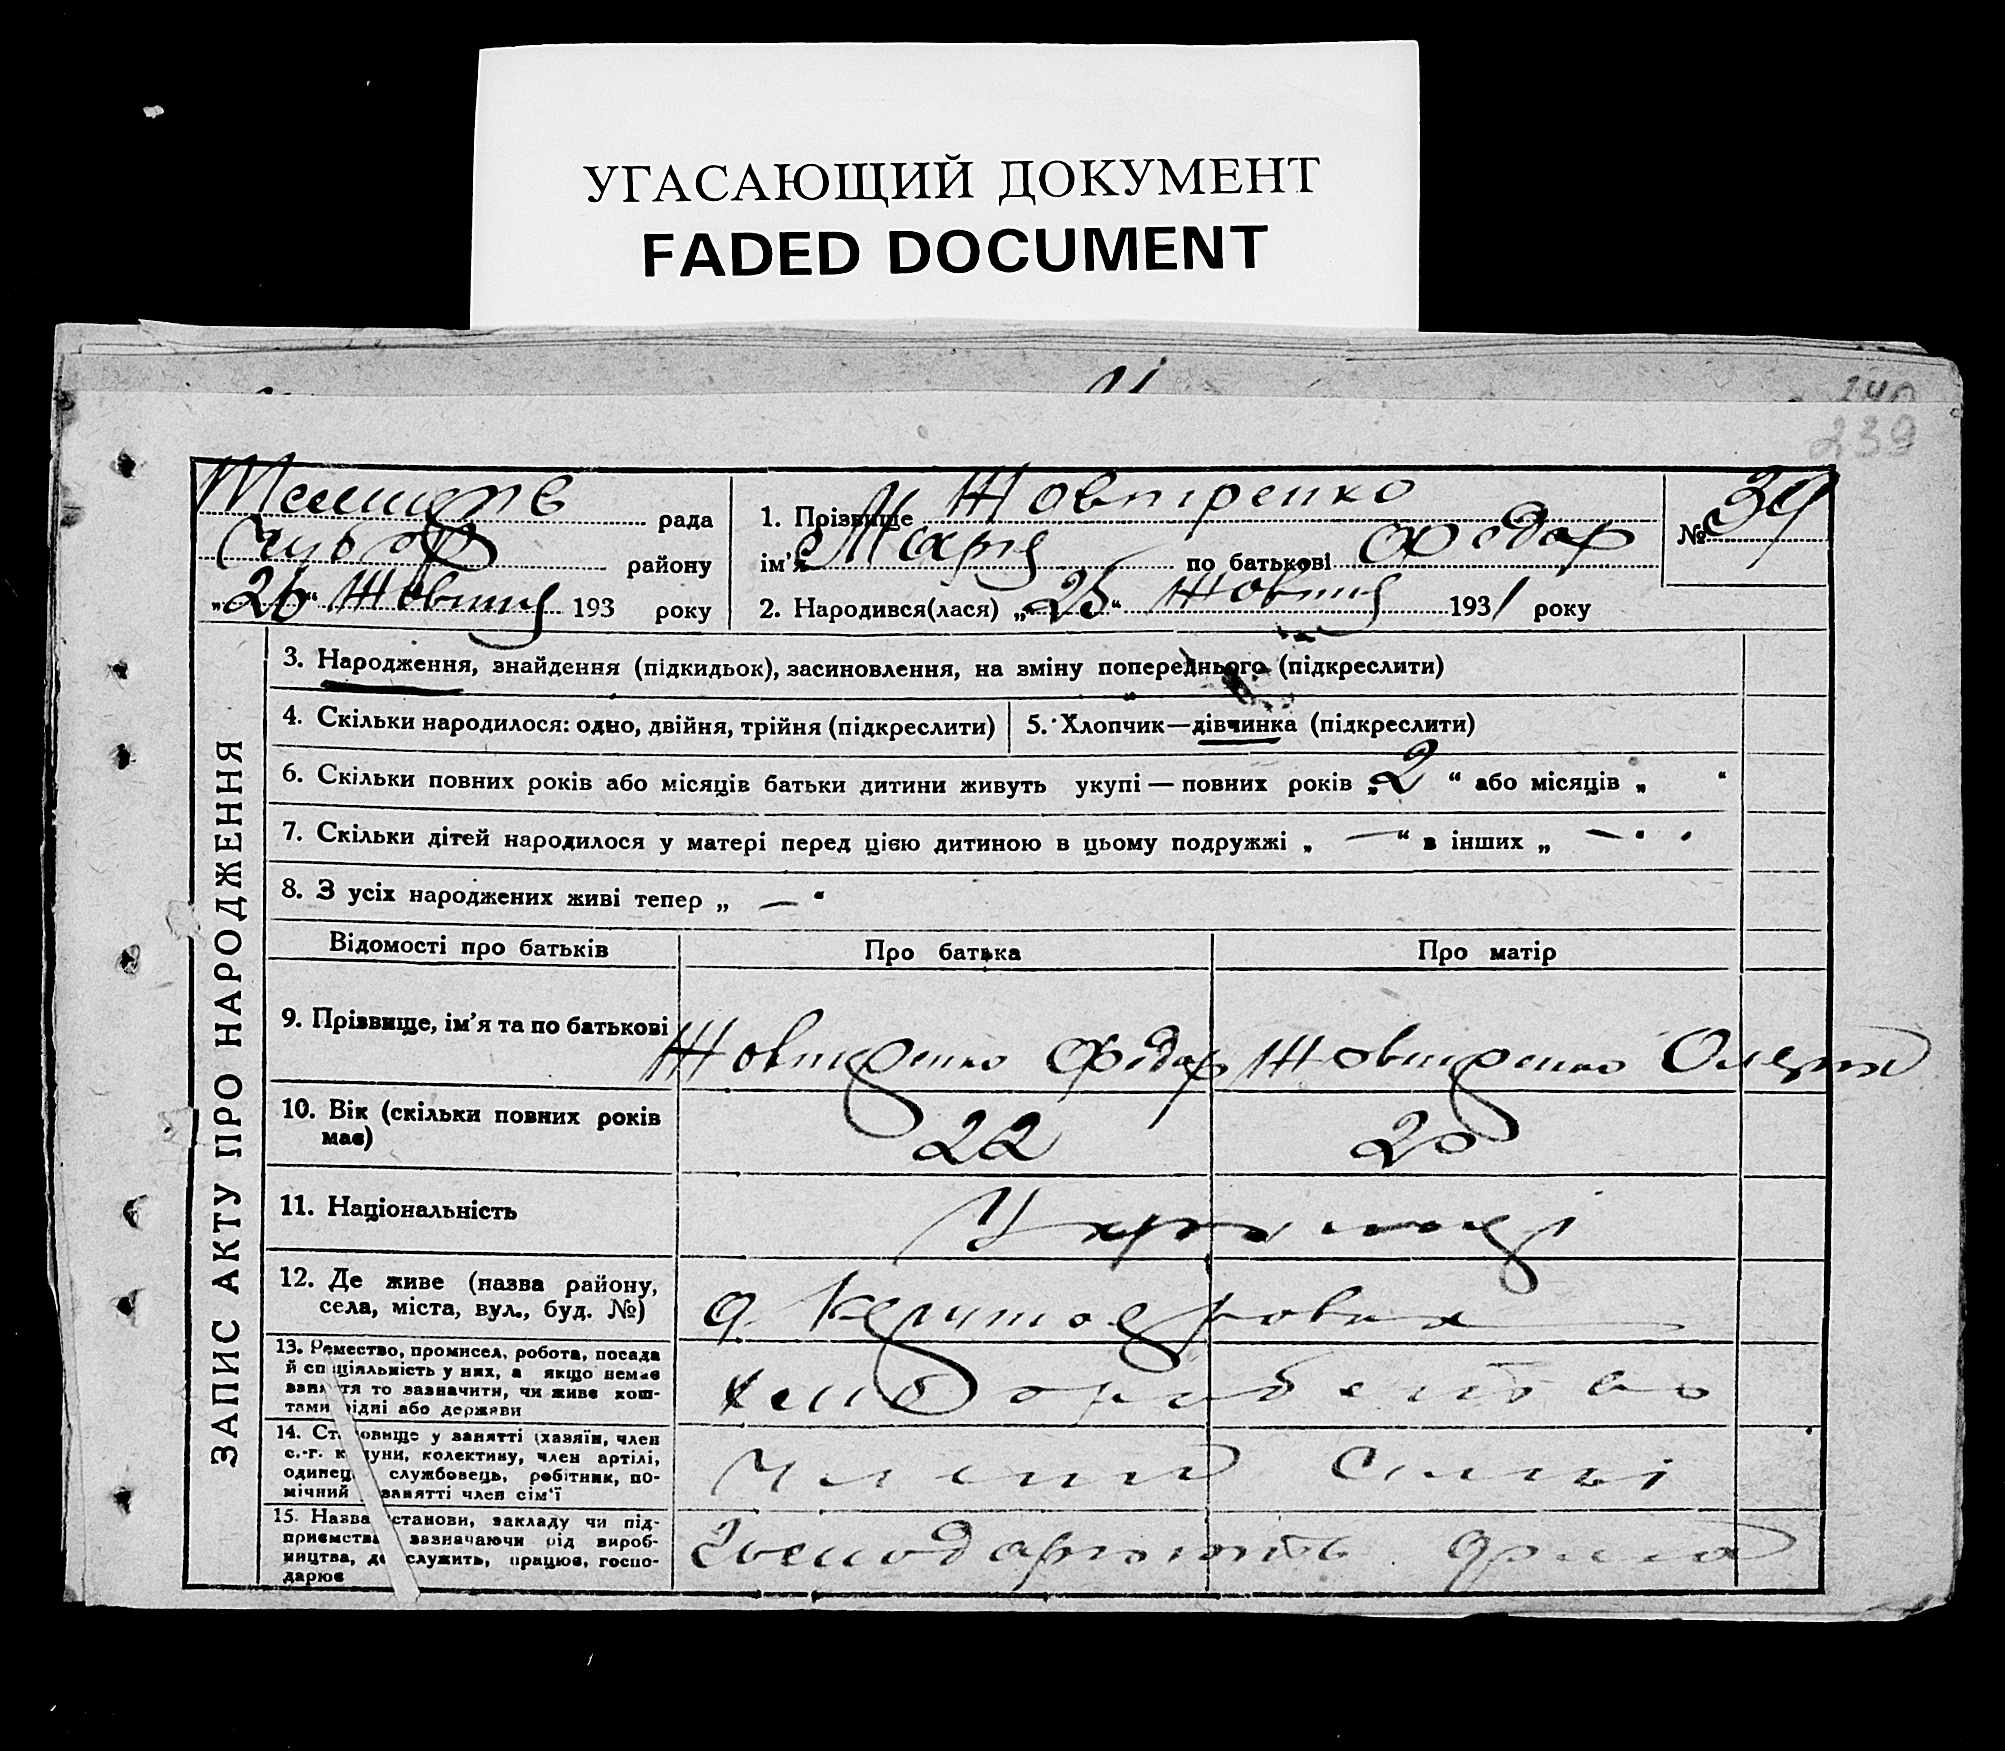 УГАСАЮЩИЙ ДОКУМЕНТ
FADED DOCUMENT
240
239
рада
району
„26“ Жовтня 193 року
1. Прізвище Жовтяренко
ім'я Марія по батькові Федор
2. Народився(лася) „25“ Жовтня 1931 року
№ 39
ЗАПИС АКТУ ПРО НАРОДЖЕННЯ
3. Народження, знайдення (підкидьок), засиновлення, на зміну попереднього (підкреслити)
4. Скільки народилося: одно, двійня, трійня (підкреслити)
5. Хлопчик—дівчинка (підкреслити)
6. Скільки повних років або місяців батьки дитини живуть укупі — повних років „2“ або місяців „ “
7. Скільки дітей народилося у матері перед цією дитиною в цьому подружжі „ — “ в інших „ — “
8. З усіх народжених живі тепер „ — “
Відомості про батьків
Про батька
Про матір
9. Прізвище, ім'я та по батькові
Федор
10. Вік (скільки повних років
має)
22
20
11. Національність
Українці
12. Де живе (назва району,
села, міста, вул., буд. №)
13. Ремество, промисел, робота, посада
й спеціяльність у них, а якщо немає
заняття то зазначити, чи живе кош-
тами рідні або держави
хліборобство
14. Становище у занятті (хазяїн, член
с.-г. комуни, колективу, член артілі,
одинець, службовець, робітник, по-
мічний в занятті член сім'ї
члени сімьї
15. Назва установи, закладу чи під-
приємства, зазначаючи рід вироб-
ництва, де служить, працює, госпо-
дарює